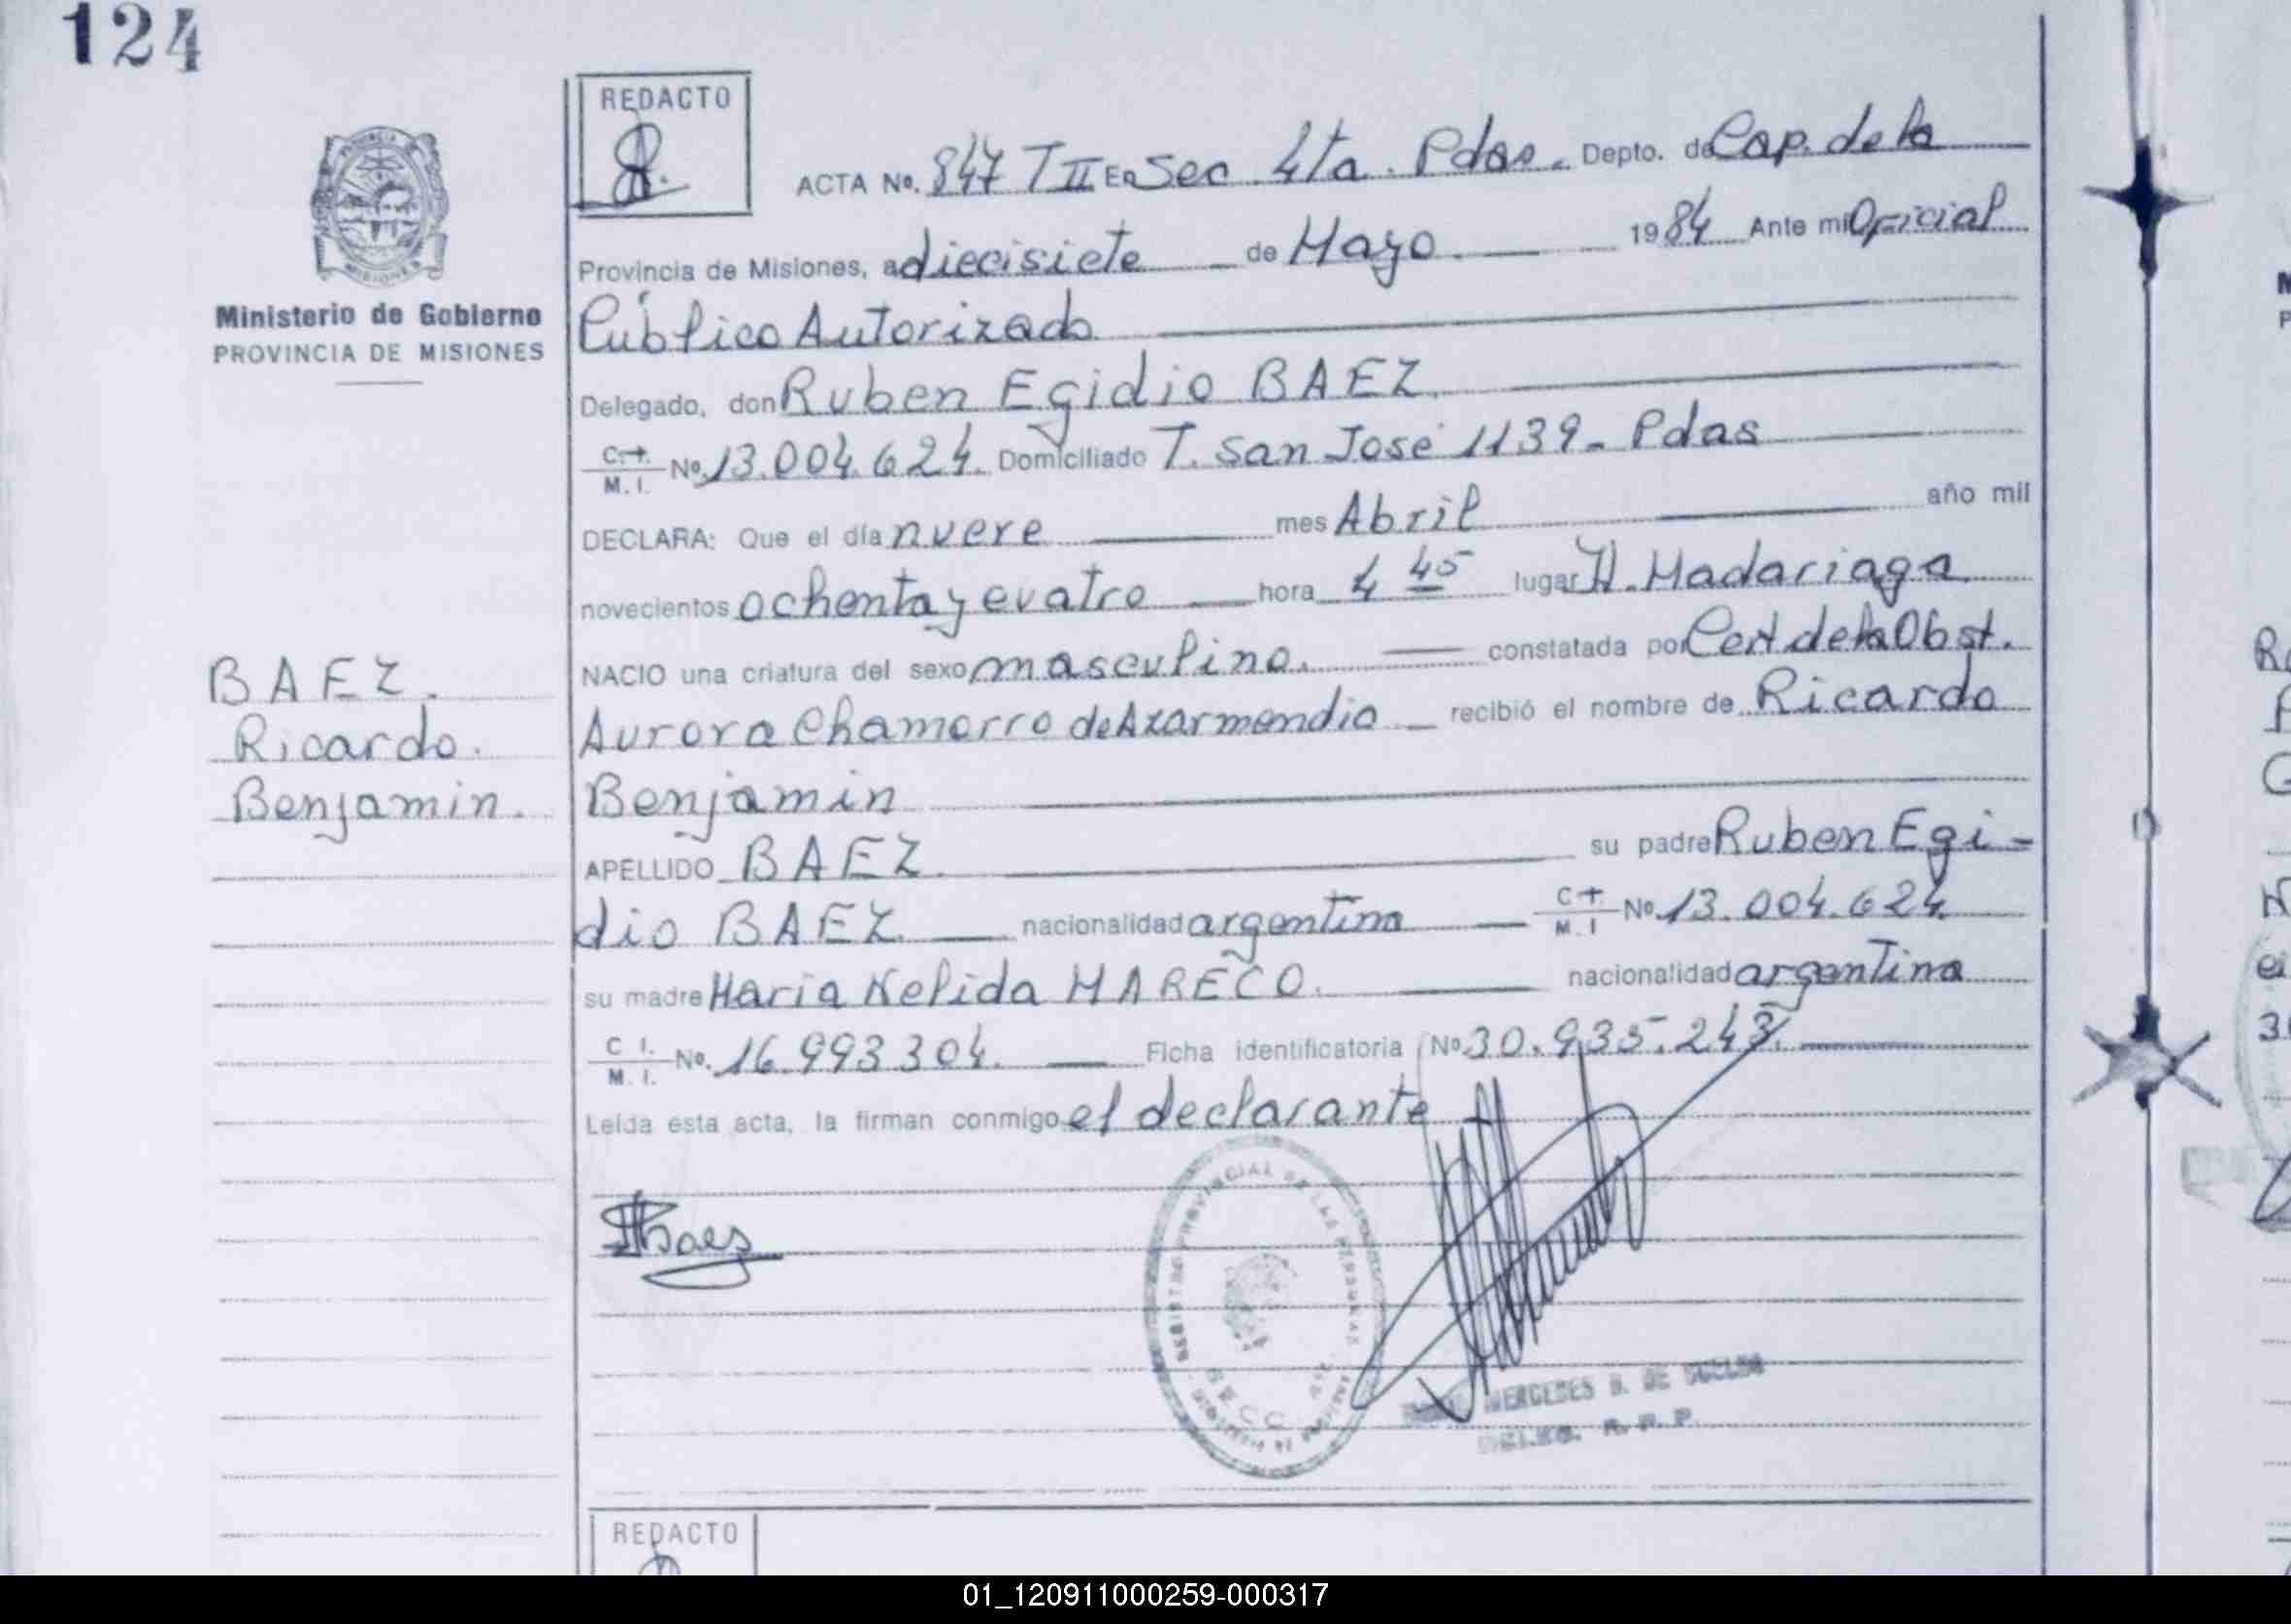 124
REDACTO
ACTA No. 847 T II En Sec. 4ta. Pdas. Depto. de Cap. de la
Provincia de Misiones, a diecisiete de Mayo. 1984 Ante mi Oficial
Público Autorizado
Delegado, don Ruben Egidio BAEZ.
C. I. M. I. No. 13.004.624. Domiciliado T. San José 1139- Pdas
DECLARA: Que el día nueve mes Abril año mil
novecientos ochenta y cuatro hora 4 45 lugar H. Madariaga
NACIO una criatura del sexo masculino. constatada por Cert de la Obst.
Aurora Chamorro de Azarmendia recibió el nombre de Ricardo
Benjamin
APELLIDO BAEZ. su padre Ruben Egi-
dio BAEZ. nacionalidad argentina C I M. I No. 13.004.624.
su madre Maria Nelida MARECO. nacionalidad argentina
C I. M. I. No. 16.993304. Ficha identificatoria No 30.935.243.
Leída esta acta, la firman conmigo el declarante
Baez
REGISTRO PROVINCIAL DE LAS PERSONAS
MERCEDES B. DE
R. P. P.
Ministerio de Gobierno
PROVINCIA DE MISIONES
BAEZ.
Ricardo.
Benjamin.
REDACTO
01_120911000259-000317